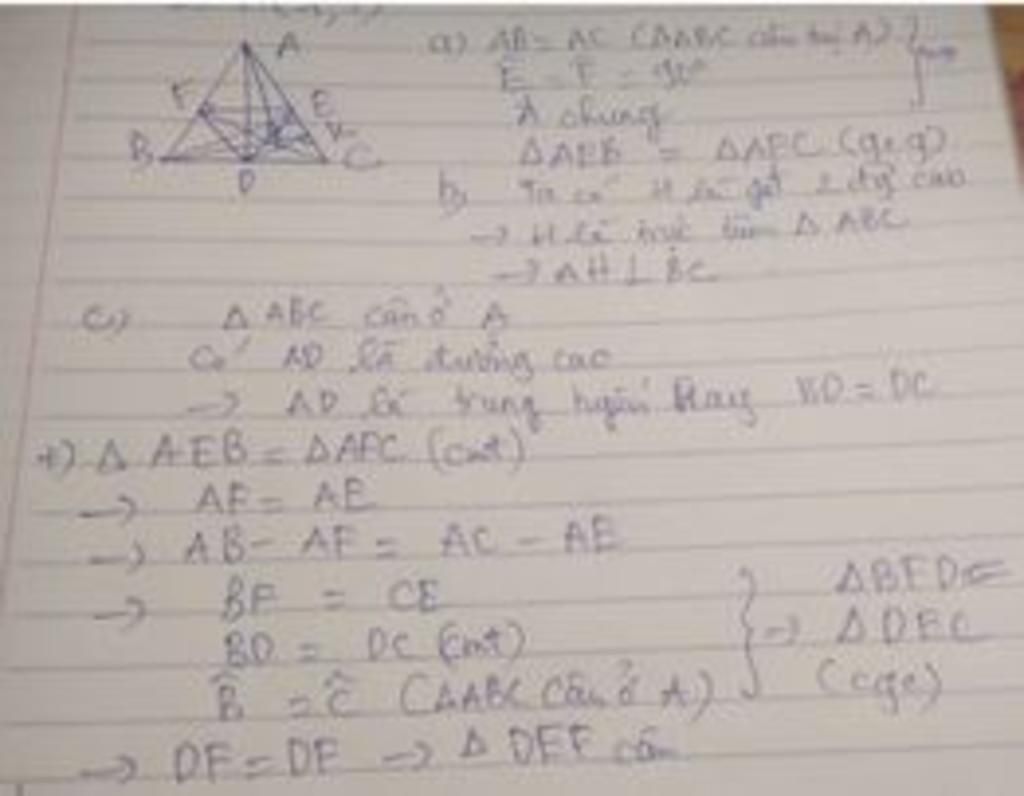 A
F
E
B
C
D
a) AB = AC (ΔABC cân tại A)
Ê = F̂ = 90°
Â chung
ΔAEB = ΔAFC (g.c.g)
b) Ta có H là 2 đg cao
→ H là trực tâm Δ ABC
→ AH ⊥ BC
c) Δ ABC cân ở A
Có AD là đường cao
→ AD là trung BD = DC
+) Δ AEB = ΔAFC (cmt)
→ AF = AE
→ AB - AF = AC - AE
→ BF = CE
BD = DC (cmt)
B̂ = Ĉ (ΔABC cân ở A)
ΔBFD =
→ ΔDEC
(cgc)
→ DF = DE → Δ DEF cân